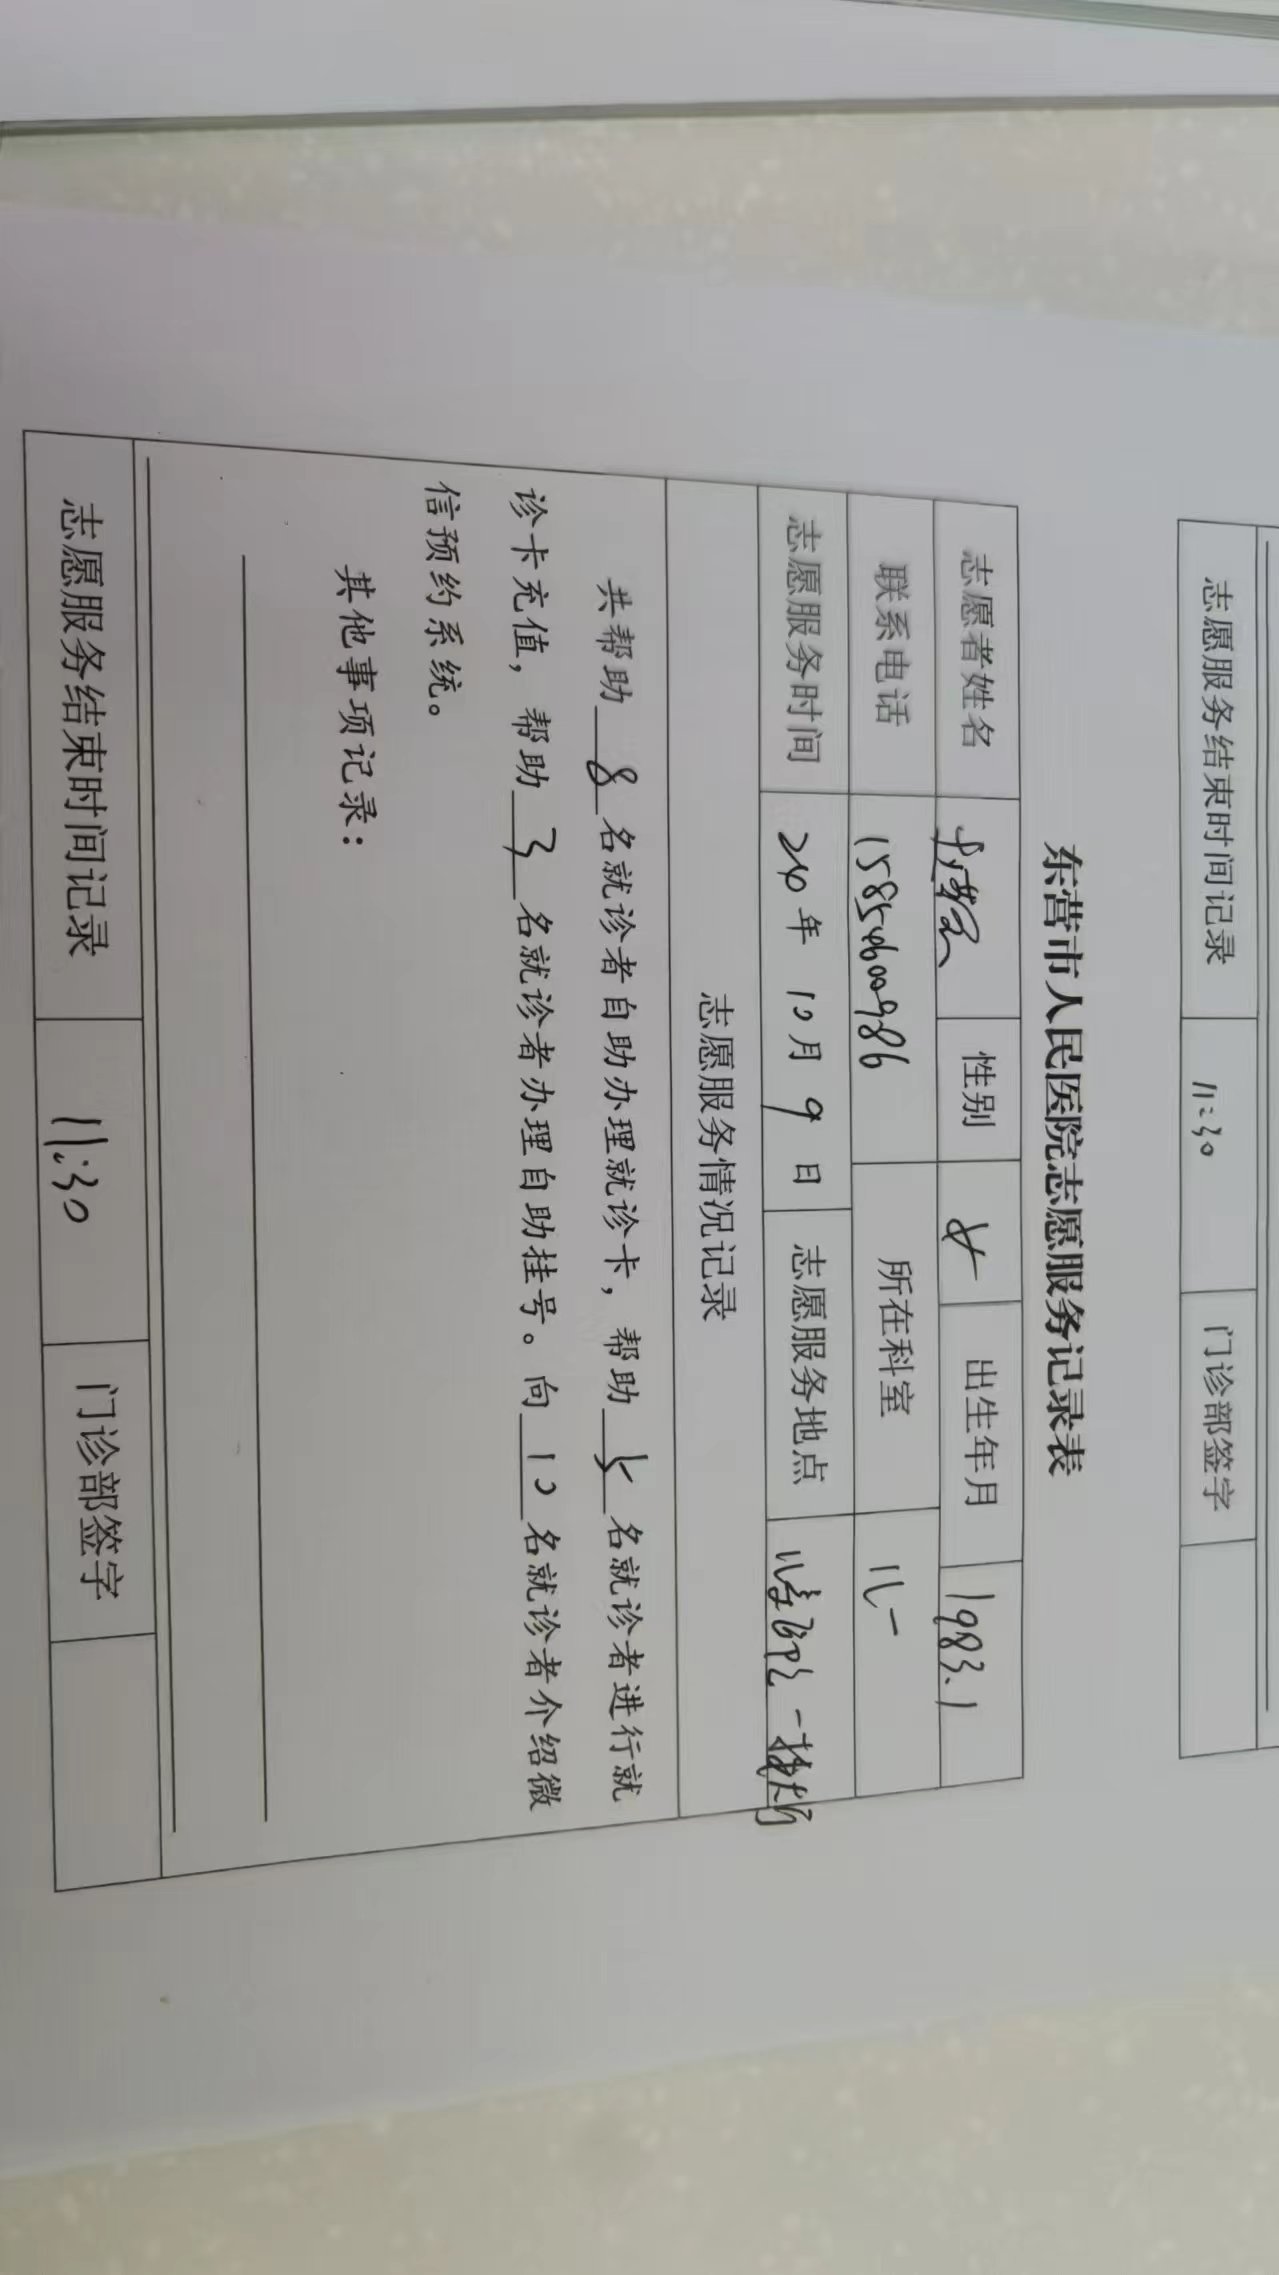 志愿服务结束时间记录 11:30 门诊部签字
东营市人民医院志愿服务记录表
志愿者姓名 性别 女 出生年月 1983.1
联系电话 15854600986 所在科室 儿一
志愿服务时间 24年 10月 9 日 志愿服务地点 儿童
志愿服务情况记录
共帮助 8 名就诊者自助办理就诊卡，帮助 5 名就诊者进行就
诊卡充值，帮助 3 名就诊者办理自助挂号。向 10 名就诊者介绍微
信预约系统。
其他事项记录：
志愿服务结束时间记录 11:30 门诊部签字